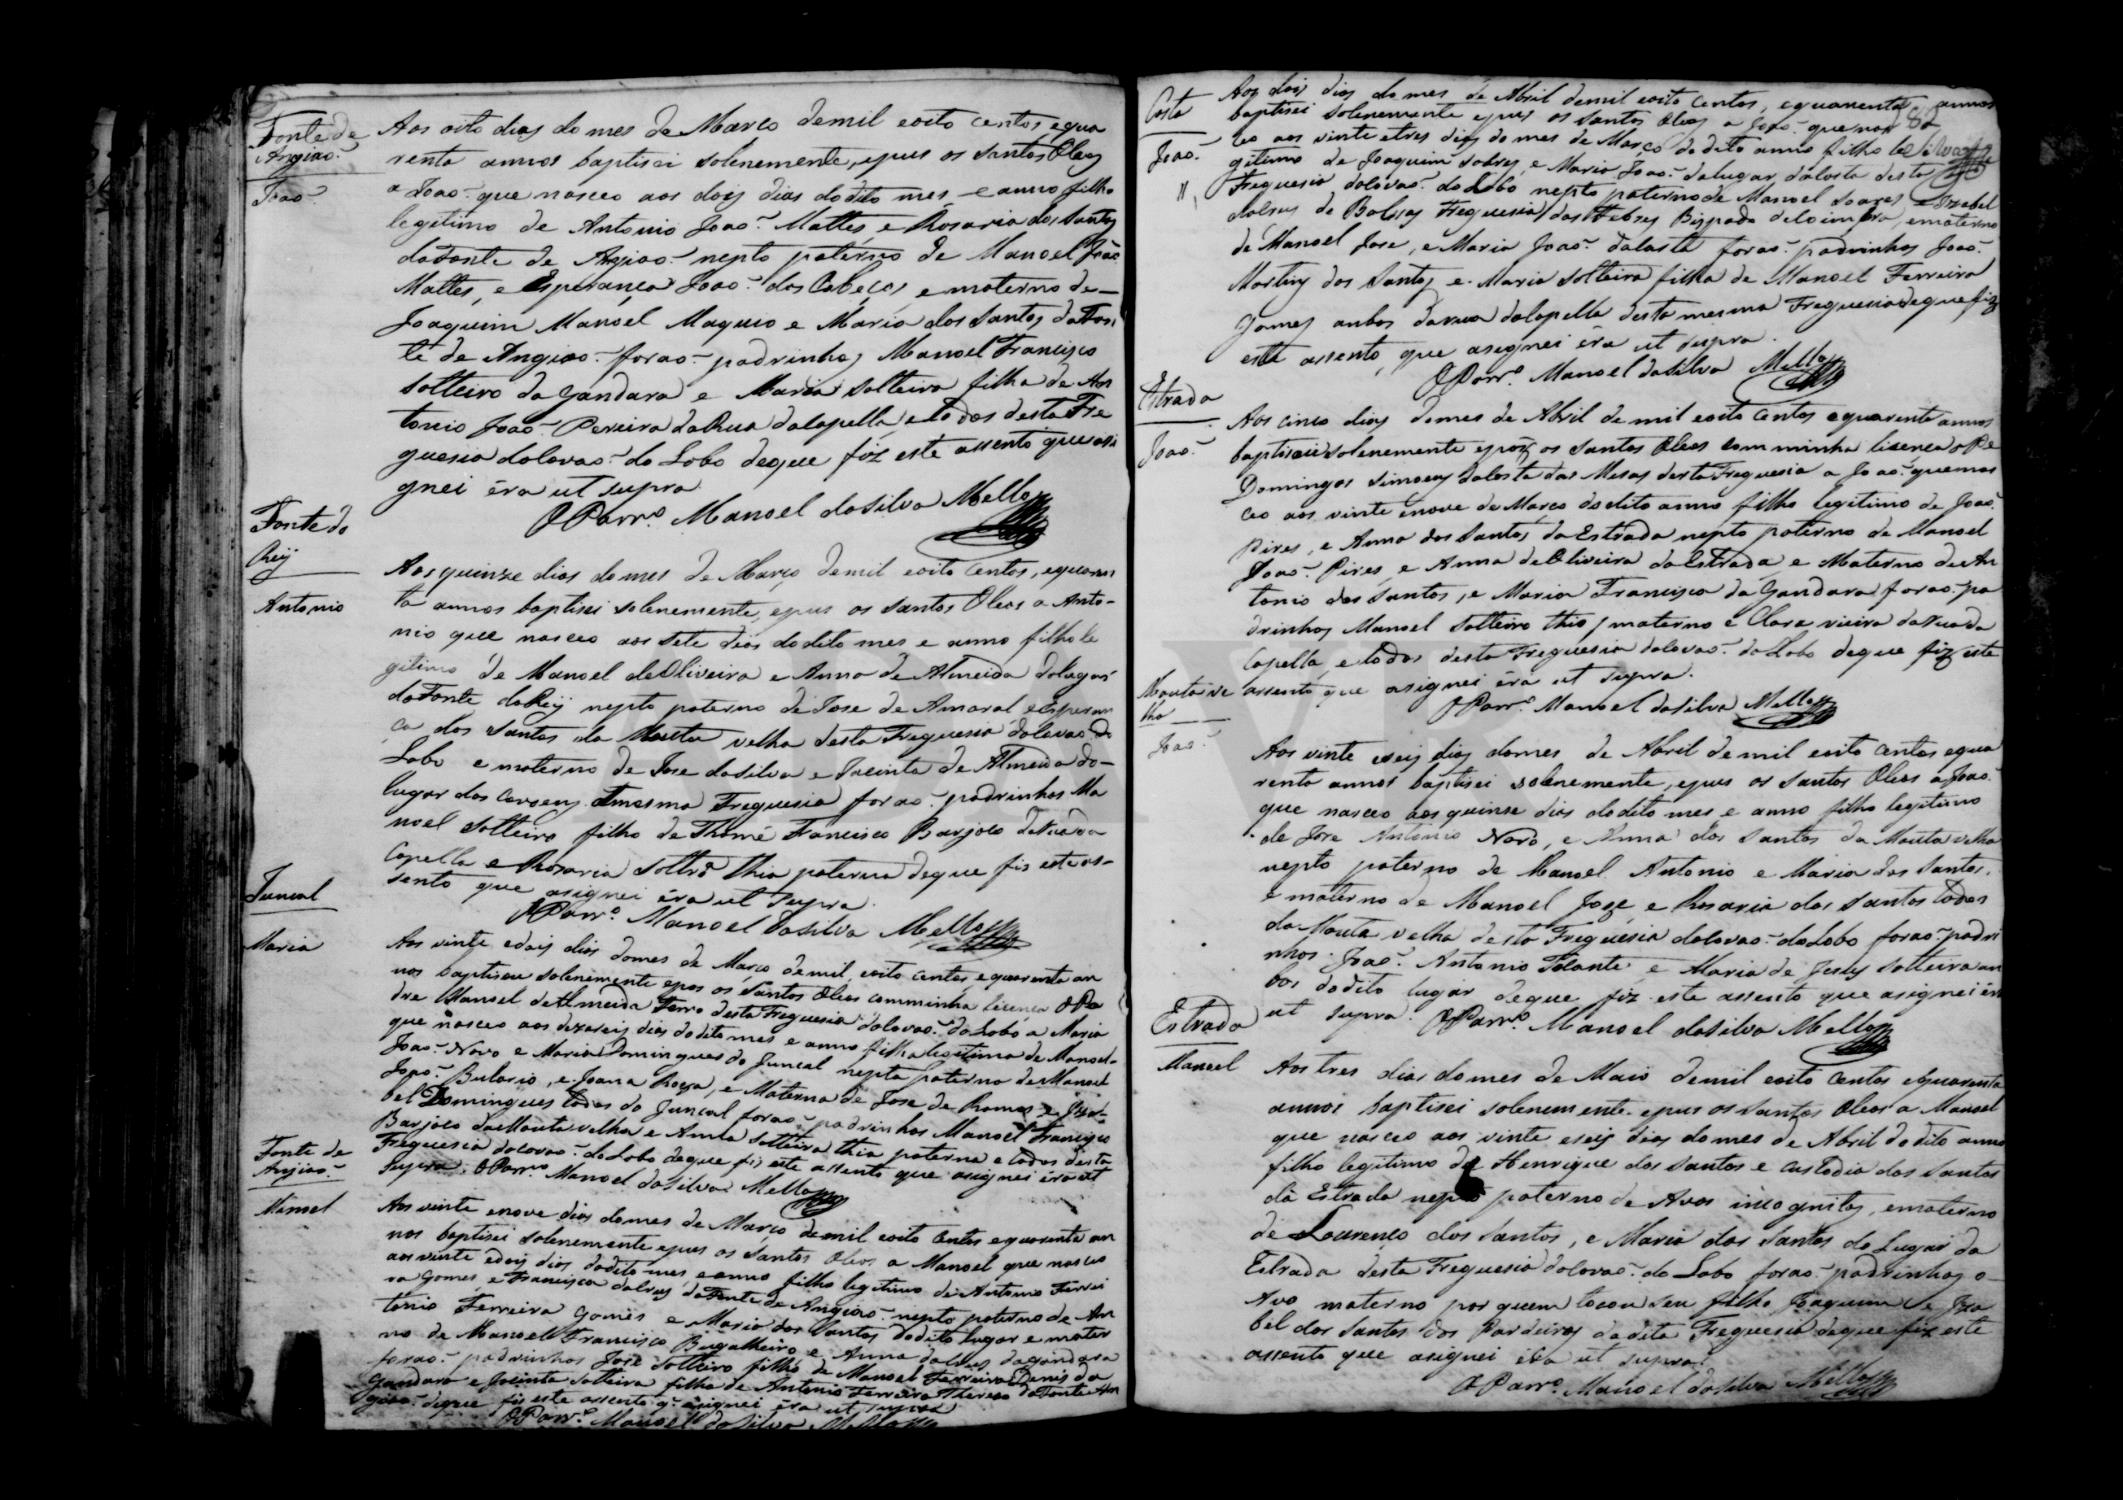 Fonte de
Angiaõ
Joaõ
Aos oito dias do mes de Março de mil eoito centos, equa
renta annos baptisei solenemente, epus os santos Oleos
a Joaõ que nasceo aos dois dias do dito mes e anno filho
legitimo de Antonio Joaõ Mattes, e Rosaria dos Santos
da Fonte de Angiaõ nepto paterno de Manoel Joaõ
Mattes, e Esperança Joaõ das Cabeças, e materno de
Joaquim Manoel Maquio e Maria dos Santos da Fon
te de Angiaõ foraõ padrinhos Manoel Francisco
solteiro da Gandara e Maria solteira filha de An
tonio Joaõ Pereira da Rua da Capella, e todos desta Fre
guesia da Covaõ do Lobo de que fiz este assento que asi
gnei éra ut supra
O Parr.º Manoel da Silva Mello
Fonte do
Reij
Antonio
Aos quinze dias do mes de Março de mil eoito centos, equaren
ta annos baptisei solenemente, epus os santos Oleos a Anto-
nio que nasceo aos sete dias do dito mes e anno filho le
gitimo de Manoel de Oliveira e Anna de Almeida do lugar
da Fonte do Reij nepto paterno de Jose de Amaral, e Esperan
ça dos Santos da Mouta velha desta Freguesia da Covaõ do
Lobo e materno de Jose da Silva e Jacinta de Almeida do-
lugar das mesma Freguesia foraõ padrinhos Ma
noel solteiro filho de Thomé Francisco Barjoco da Rua da
Capella e Rosaria soltrª thia paterna de que fis este as-
sento que asignei éra ut supra.
O Parr.º Manoel da Silva Mello
Juncal
Maria
Aos vinte edois dias do mes de Março de mil eoito centos, equarenta an
nos baptisou solenemente epos os Santos Oleos comminha licença o Pa
dre Manoel de Almeida Ferro desta Freguesia da Covaõ do Lobo a Maria
que nasceo aos dezaseis dias do dito mes e anno filha legitima de Manoel
Joaõ Novo e Maria Domingues do Juncal nepta paterna de Manoel
Joaõ Bulario, e Joana Rosa, e Materna de Jose de Ramos e Iza
bel Domingues todos do Juncal foraõ padrinhos Manoel Francisco
Barjoco da Mouta velha e Anna solteira thia paterna e todos desta
Freguesia da Covaõ do Lobo de que fis este assento que asignei éra ut
supra. O Parr.º Manoel da Silva Mello
Fonte de
Angiaõ
Manoel
Aos vinte enove dias do mes de Março de mil eoito centos equarenta an
nos baptisei solenemente epus os santos Oleos a Manoel que nasceo
aos vinte edois dias do dito mes e anno filho legitimo de Antonio Ferrei
ra Gomes e Francisca da Fonte de Angiaõ nepto paterno de An
tonio Ferreira Gomes e Maria dos Santos do dito lugar e mater
no de Manoel Francisco Bugalheiro e Anna da Gandara
foraõ padrinhos José solteiro filho de Manoel Ferreira Diniz da
Gandara e Jacinta solteira filha de Antonio Ferreira Thereso da Fonte An
giaõ de que fis este assento q. asignei éra ut supra
O Parr.º Manoel da Silva Mello
82
Costa
Joaõ
Aos dois dias do mes de Abril de mil eoito centos, equarenta annos
baptisei solenemente epus os santos Oleos a Joaõ que nas
ceo aos vinte etres dias do mes de Março do dito anno filho le
gitimo de Joaquim e Maria Joaõ do lugar da Costa desta
Freguesia da Covaõ do Lobo nepto paterno de Manoel Soares e Izabel
de Freguesia das Febres Bispado de Coimbra, ematerno
de Manoel Jose, e Maria Joaõ da Costa foraõ padrinhos Joaõ
Martins dos Santos e Maria solteira filha de Manoel Ferreira
Gomes anbos da rua da Capella desta mesma Freguesia de que fiz
este assento, que asignei éra ut supra.
O Parr.º Manoel da Silva Mello
Estrada
Joaõ
Aos cinco dias do mes de Abril de mil eoito centos equarenta annos
baptisou solenemente epoz os santos Oleos com minha licença o Pe
Domingos Simoens da Costa das Mesas desta Freguesia a Joaõ que nas
ceo aos vinte enove de Março do dito anno filho legitimo de Joaõ
Pires, e Anna dos Santos da Estrada nepto paterno de Manoel
Joaõ Pires, e Anna de Oliveira da Estrada e Materno de An
tonio dos Santos, e Maria Francisca da Gandara foraõ pa
drinhos Manoel solteiro thio materno e Clara vieira da Rua da
Capella, e todos desta Freguesia da Covaõ do Lobo de que fiz este
assento que asignei éra ut supra.
O Parr.º Manoel da Silva Mello
Mouta ve
lha
Joaõ
Aos vinte eseis dias do mes de Abril de mil eoito centos equa
renta annos baptisei solenemente, epus os santos Oleos a Joaõ
que nasceo aos quinse dias do dito mes e anno filho legitimo
de Jose Antonio Novo, e Anna dos Santos da Mouta velha
nepto paterno de Manoel Antonio e Maria dos Santos,
e materno de Manoel Joze, e Rosaria dos santos todos
da Mouta velha desta Freguesia da Covaõ do Lobo foraõ padri
nhos Joaõ Antonio e Maria de Jesus solteira an
bos do dito lugar de que fiz este assento que asignei éra
ut supra. O Parr.º Manoel da Silva Mello
Estrada
Manoel
Aos tres dias do mes de Maio de mil eoito centos equarenta
annos baptisei solenemente epus os santos Oleos a Manoel
que nasceo aos vinte eseis dias do mes de Abril do dito anno
filho legitimo de Henrique dos Santos e Custodia dos Santos
da Estrada nepto paterno de Avos incognitos, ematerno
de Lourenço dos Santos, e Maria dos Santos do Lugar da
Estrada desta Freguesia da Covaõ do Lobo foraõ padrinhos o
Avo materno por quem tocou seu filho Joaquim e Iza
bel dos Santos dos Pardeiros da dita Freguesia de que fiz este
assento que asignei éra ut supra.
O Parr.º Manoel da Silva Mello